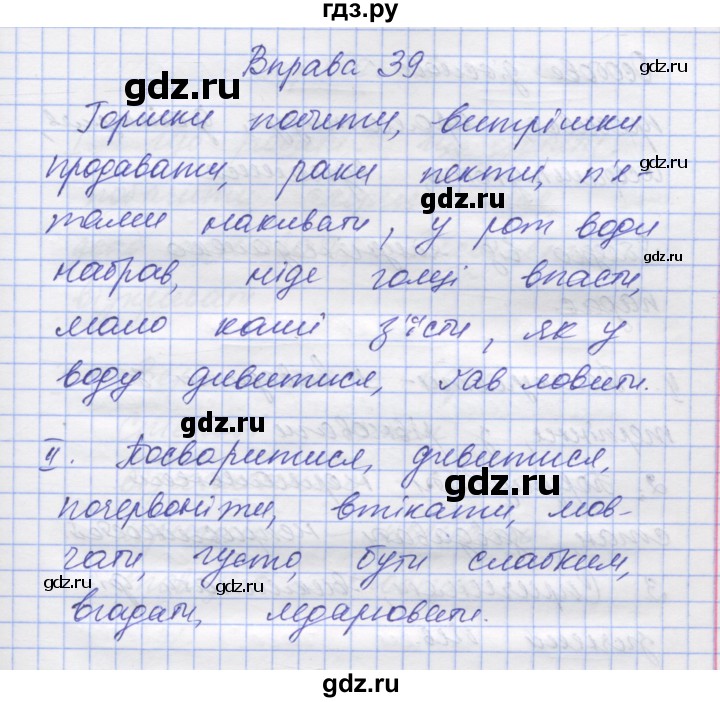 гдз.ру
Вправа 39
gdz.ru
gdz.ru
Горшки побити, витрішки
gdz.ru
продавати, раки пекти, п'я-
gdz.ru
тами накивати, у рот води
набрав, ніде голці впасти,
gdz.ru
gdz.ru
мало каші з'їсти, як у
воду дивитися, ґав ловити.
gdz.ru
gdz.ru
II. Посваритися, дивитися,
gdz.ru
почервоніти, втікати, мов-
чати, густо, бути слабким,
gdz.ru
gdz.ru
вгадати, ледарювати.
gdz.ru